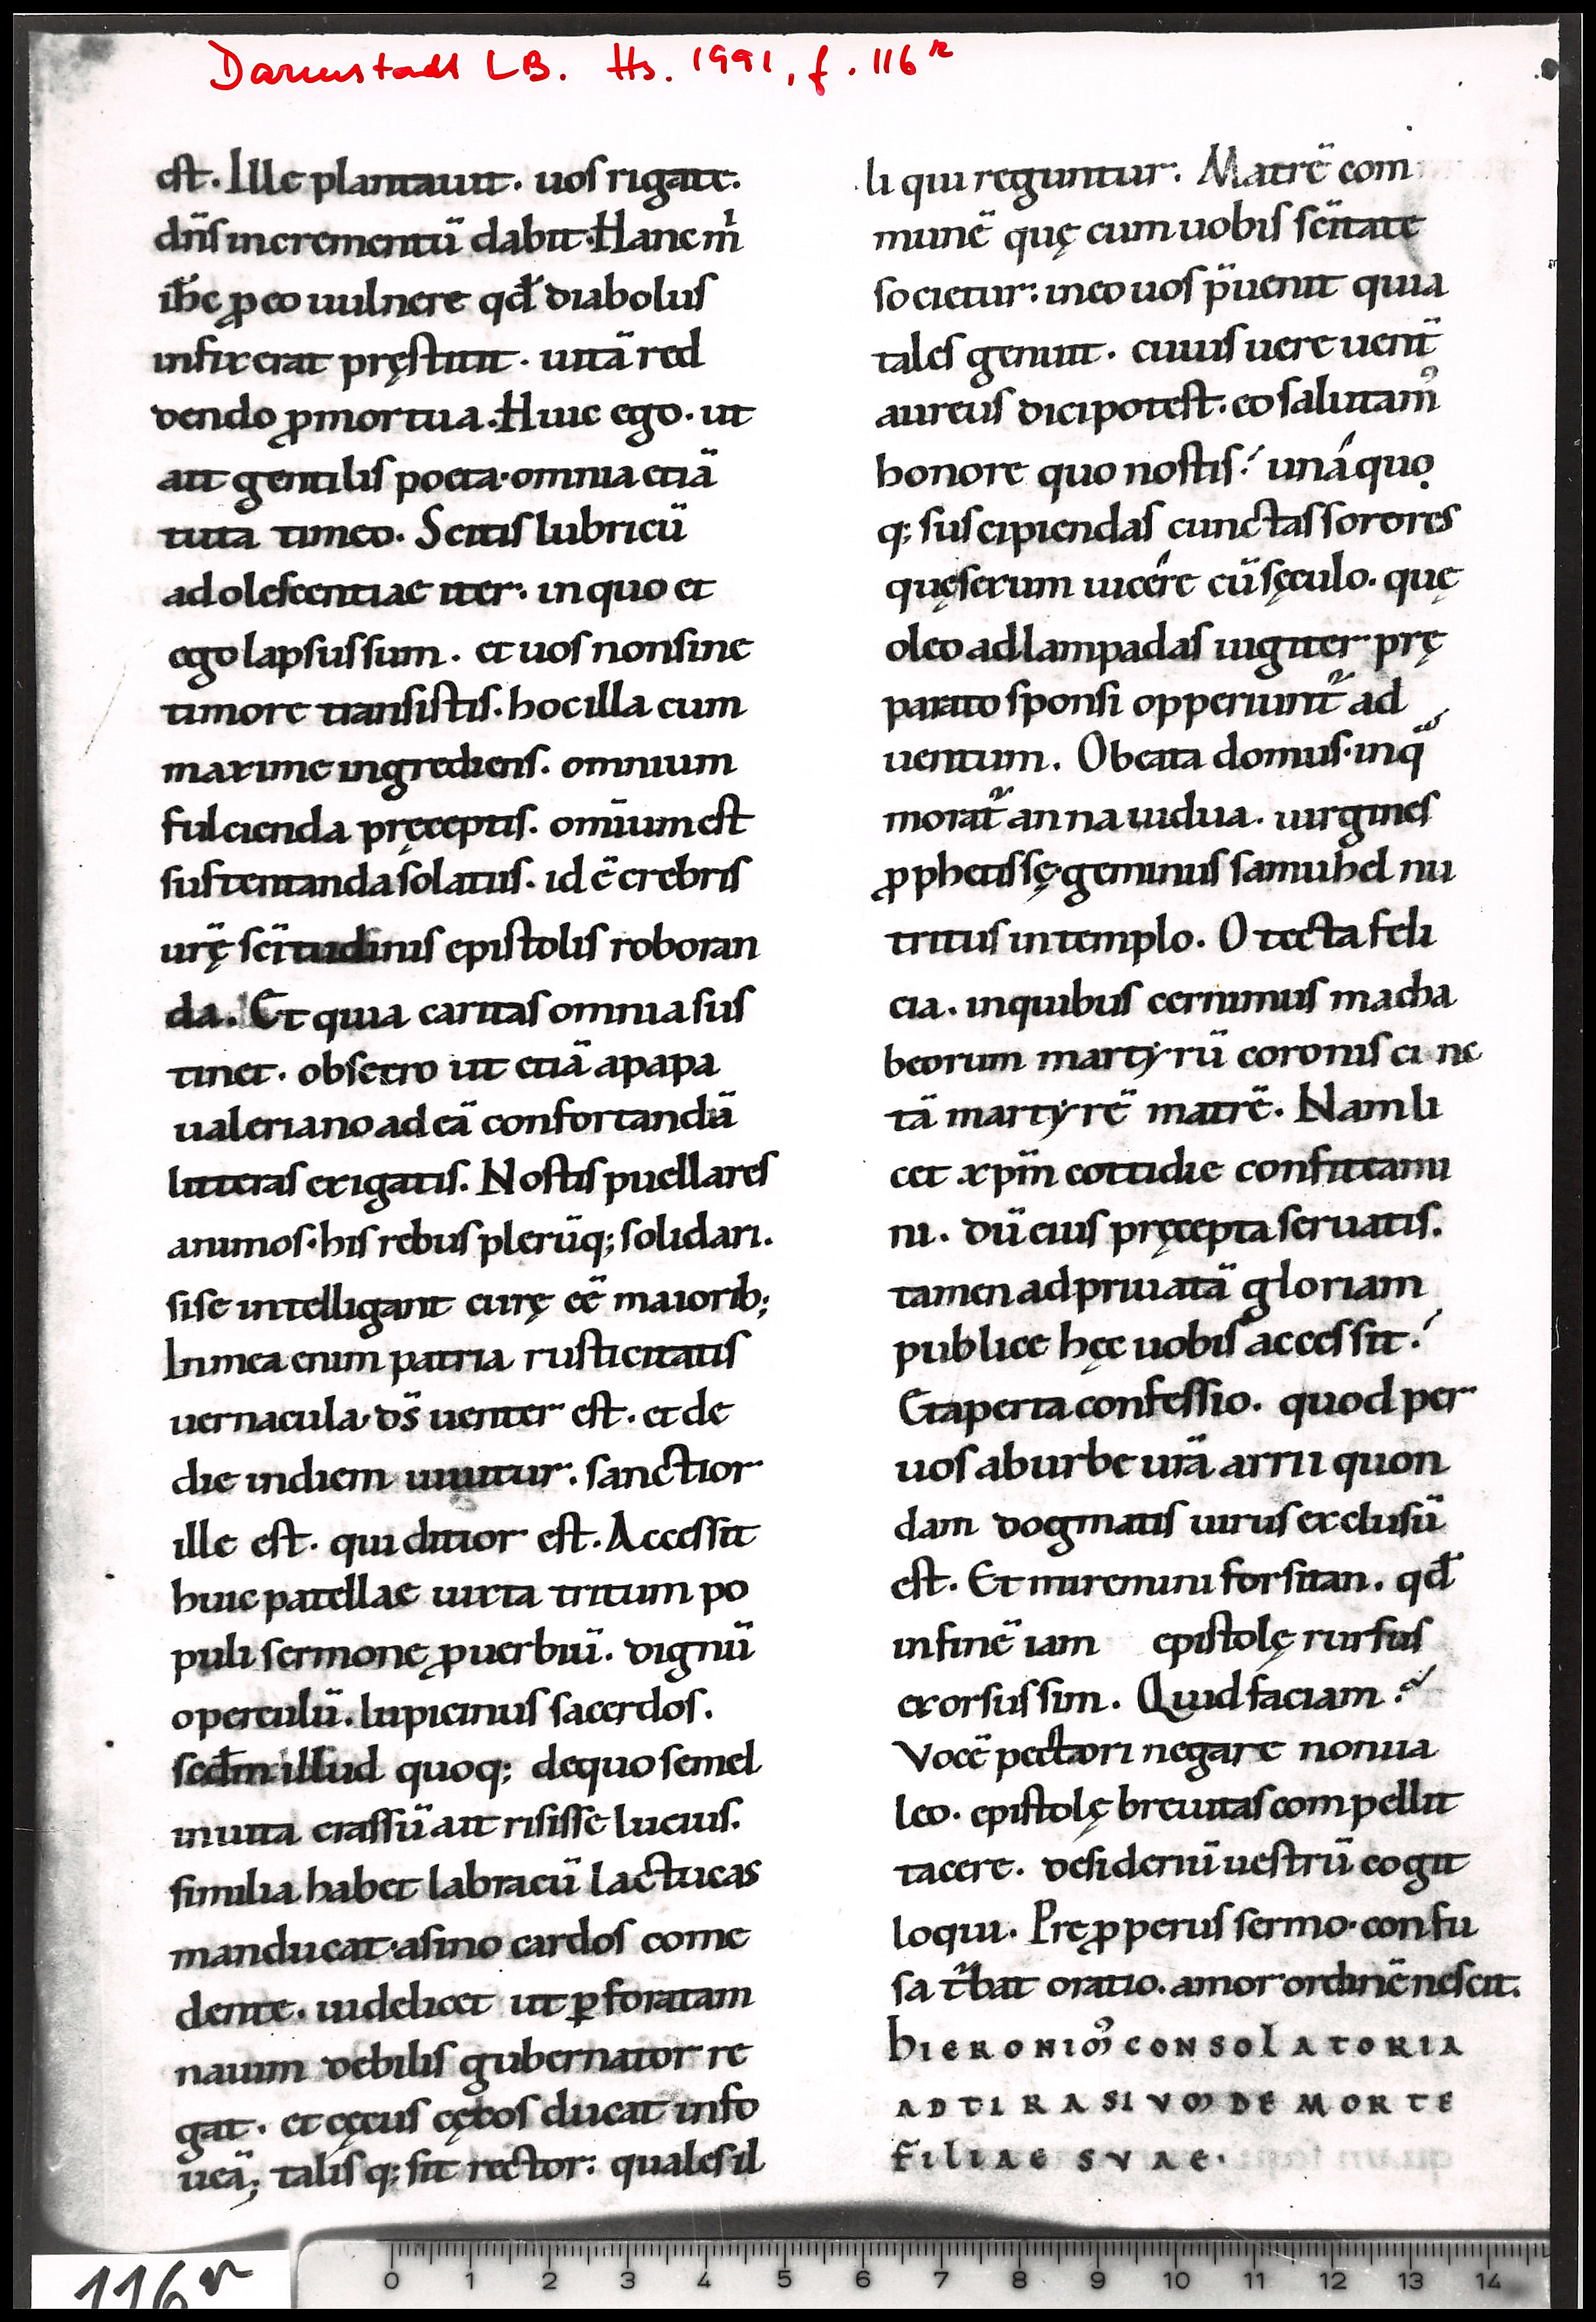 Darmstadt LB. Hs. 1991, f. 116r
est. Ille plantauit. uos rigate.
dn̄s incrementū dabit. Hanc m̄
ih̄c ꝓ eo uulnere qd̄ diabolus
infixerat pręstitit. uitā red
dendo ꝓmortua. Huic ego. ut
ait gentilis poeta. omnia etiā
tuta timeo. Scitis lubricū
adolescentiae iter. in quo et
ego lapsus sum. et uos non sine
timore transistis. hoc illa cum
maxime ingrediens. omnium
fulcienda pręceptis. omīum est
sustentanda solatiis. id ē crebris
ur̄ę sc̄itudinis epistolis roboran
da. Et quia caritas omnia sus
tinet. obsecro ut etiā apapa
ualeriano ad eā confortandā
litteras exigatis. Nostis puellares
animos. his rebus plerūq; solidari.
si se intelligant curę eē maiorib;
In mea enim patria rusticitatis
uernacula. ds̄ uenter est. et de
die indiem uiuitur. sanctior
ille est. qui ditior est. Accessit
huic patellae iuxta tritum po
puli sermone ꝓuerbiū. dignū
operculū. lupicinus sacerdos.
scd̄m illud quoq; de quo semel
inuita crassū ait risisse lucius.
similia habet labra cū lactucas
manducat. asino cardos come
dente. uidelicet ut ꝑforatam
nauim debilis gubernator re
gat. et cęcus cęcos ducat in fo
ueā; talis q; sit rector. quales il
li qui reguntur. Matrē com
munē quę cum uobis sc̄itate
societur. in eo uos p̄uenit quia
tales genuit. cuius uere uent̄
aureus dici potest. eo salutam᾽
honore quo nostis. unā quo
q; suscipiendas cunctas sorores
quę sexum uicere cū sęculo. quę
oleo ad lampadas iugiter prę
parato sponsi opperiunt̄ ad
uentum. O beata domus. in q̄
morat̄ anna uidua. uirgines
ꝓphetissę. geminus samuhel nu
tritus in templo. O tecta feli
cia. in quibus cernimus macha
beorum martyrū coronis ci nc
tā martyrē matrē. Nam li
cet xp̄m cottidie confiteami
ni. dū eius pręcepta seruatis.
tamen ad priuatā gloriam
publice hęc uobis accessit.
Et aperta confessio. quod per
uos ab urbe ur̄a arrii quon
dam dogmatis uirus exclusū
est. Et miremini forsitan. qd̄
in finē iam epistolę rursus
exorsus sim. Quid faciam?
Vocē pectori negare non ua
leo. epistolę breuitas compellit
tacere. desideriū uestrū cogit
loqui. Preꝓperus sermo. confu
sa t᷑bat oratio. amor ordinē nescit.
HIERONIM᾽ CONSOLATORIA
AD TIRASIVM DE MORTE
FILIAE SVAE.
116r
0 1 2 3 4 5 6 7 8 9 10 11 12 13 14